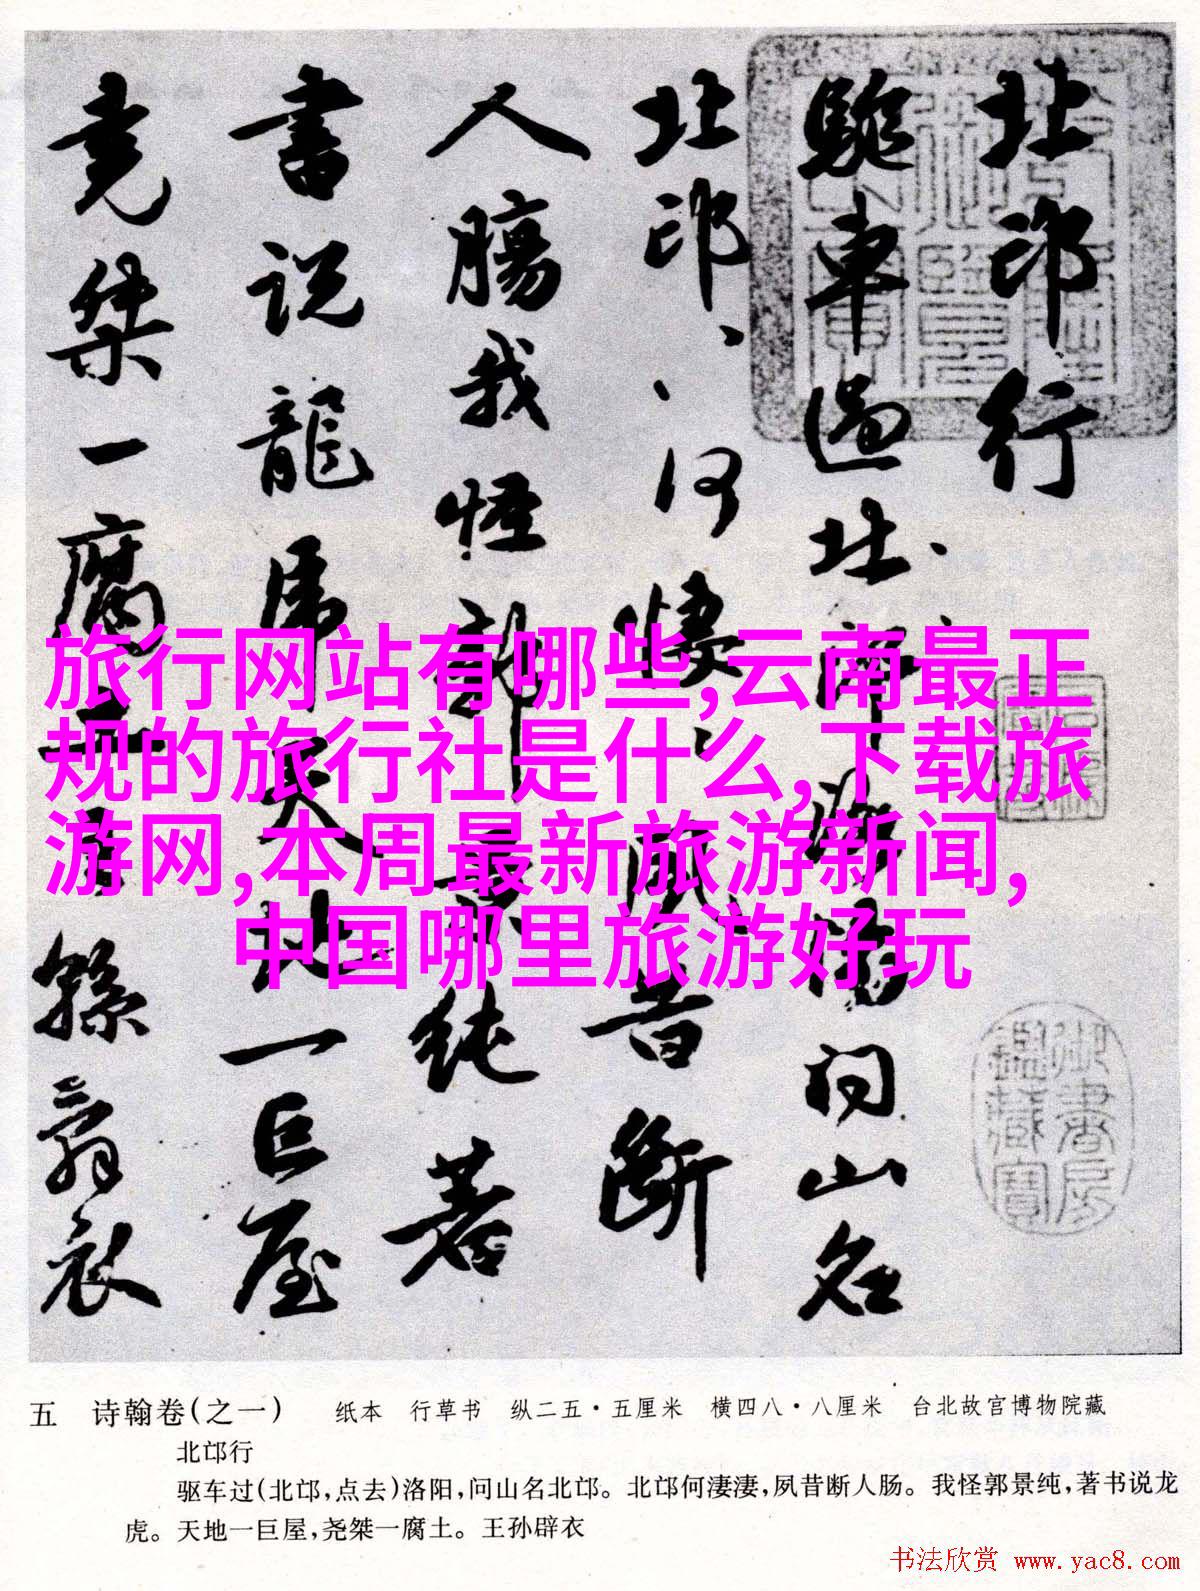 北邙行
驅車過北邙洛陽問山名
北邙、、何悽、夙昔斷
人腸我怪郭景純著
書説龍虎天地一巨屋
堯桀一腐土王孫辟衣
旅行网站有哪些,云南最正
规的旅行社是什么,下载旅
游网,本周最新旅游新闻,
中国哪里旅游好玩
御書房鑑藏寶
五 诗翰卷(之一) 纸本 行草书 纵二五·五厘米 横四八·八厘米 台北故宫博物院藏
北邙行
驱车过(北邙,点去)洛阳,问山名北邙。北邙何凄凄,夙昔断人肠。我怪郭景纯,著书说龙
虎。天地一巨屋,尧桀一腐土。王孙辟衣
书法欣赏 www.yac8.com